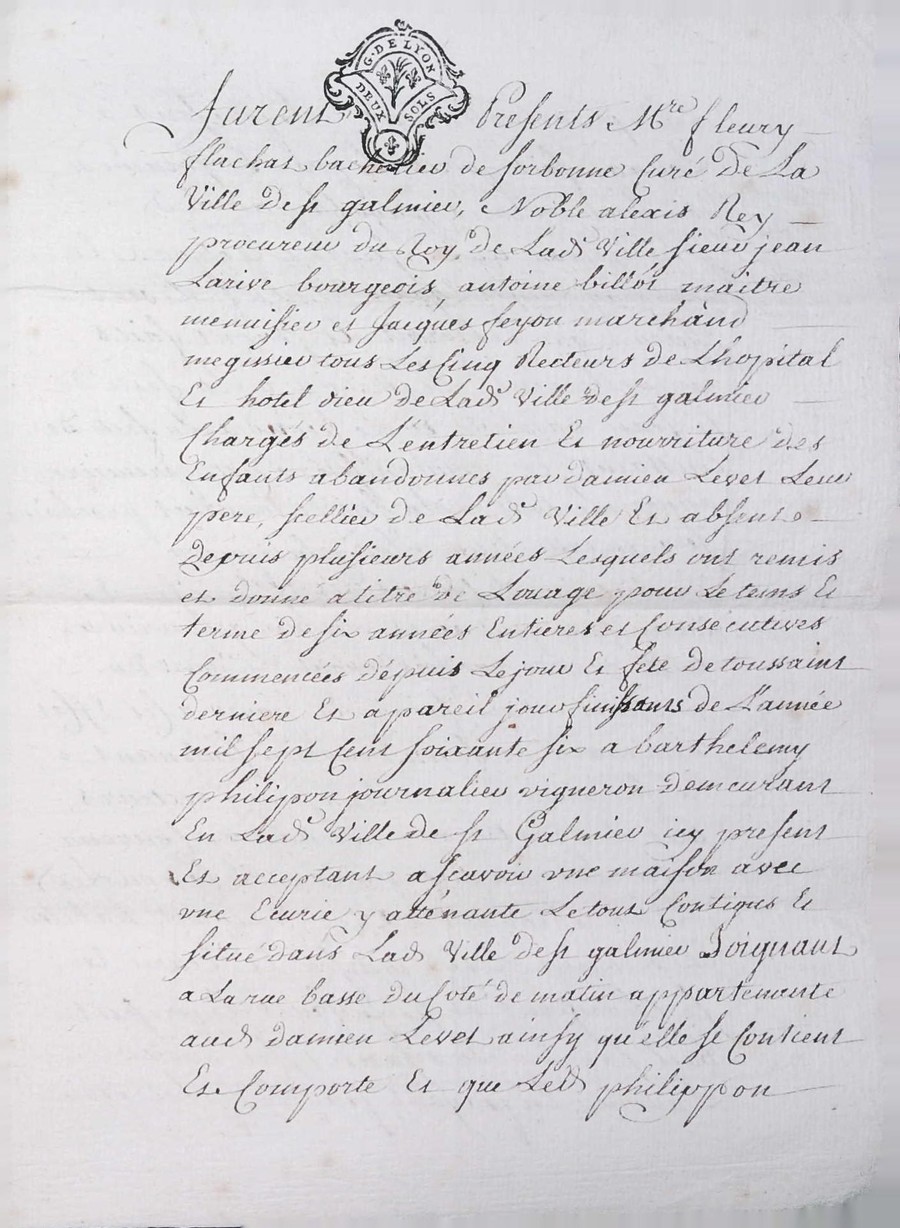 G. DE LYON
DEUX SOLS
furent Presents Mre fleury
flachat bachelier de sorbonne Curé De La
Ville De st galmier, Noble alexis Rey
procureur du Roy de Lade Ville sieur jean
Larive bourgeois antoine billot maitre
menuisier et Jacques feyou marchand
megissier tous Les Cinq Recteurs de Lhopital
Et hotel dieu de Lade Ville de st galmier
Chargés de L'entretien Et nourriture des
Enfants abandonnes par damien Levet Leur
pere, scellier de Lade Ville Et absent
Depuis plusieurs années Lesquels ont remis
et donné a titre de Louage pour Le tems Et
terme de six années Entieres et Consécutives
Commencées dépuis Le jour Et fete de toussaint
derniere Et a pareil jour finissants de L'année
mil sept Cent soixante six a barthelemy
philipon journalier vigneron demeurant
En Lade Ville de st Galmier icy present
Et acceptant ascavoir une maison avec
une Ecurie y attenante Le tout Contigus Et
situé dans Lade Ville de st galmier Joignant
a La rue basse du Coté de matin appartenante
aud damien Levet ainsy qu'elle se Contient
Et Comporte Et que Led philippon